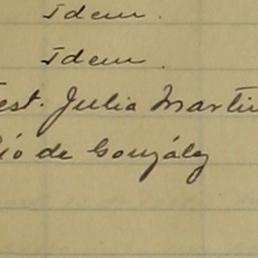 Idem.
Idem.
Test. Julia Martin
ció de Gonzálz